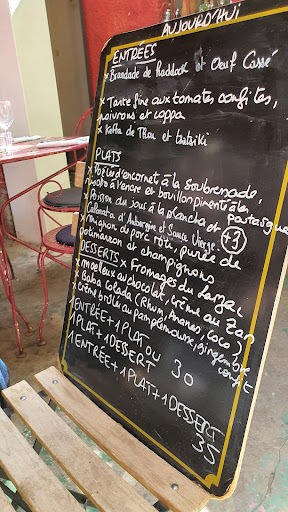 AUJOURD'HUI
ENTREES
x Brandade de Haddock et Oeuf Cassé
x Tarte fine aux tomates confites,
poivrons et coppa
x Kefta de Thon et tzatziki
PLATS
x Poêlée d'encornet à la soubressade,
à l'encre et bouillon pimenté à la partager
x Poisson du jour à la plancha et +3
d'Aubergine et Sauce Vierge
x Mignon de porc rôti, purée de
potimarron et champignons
DESSERTS x Fromages du Larzac
x Moelleux au chocolat, crème au Zan
x Baba Colada (Rhum, Ananas, Coco)
x Crème brûlée au pamplemousse, gingembre
confit
1 ENTRÉE + 1 PLAT OU
1 PLAT + 1 DESSERT 30
1 ENTRÉE + 1 PLAT + 1 DESSERT
35